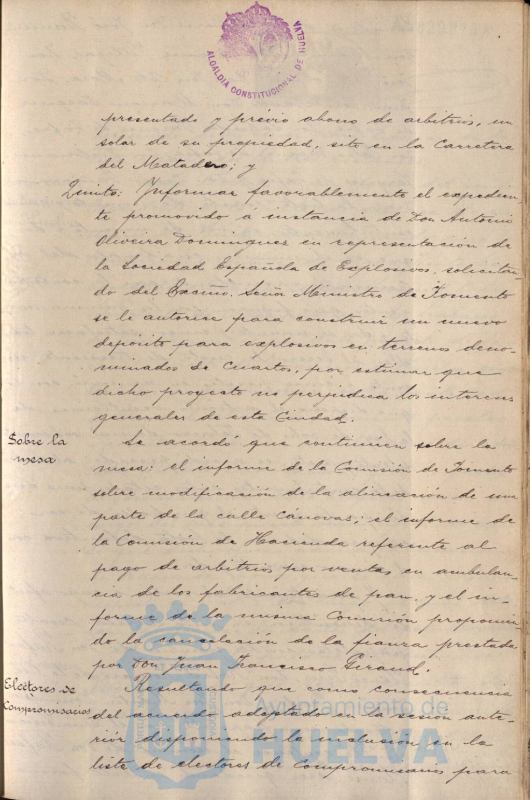 ALCALDIA CONSTITUCIONAL DE HUELVA
presentado y prévio abono de arbitrios, un
solar de su propiedad, sito en la Carretera
del Matadero; y
Quinto: Informar favorablemente el expedien-
te promovido á instancia de Don Antonio
Oliveira Dominguez en representación de
la Sociedad Española de Explosivos, solicitan-
do del Excmo. Señor Ministro de Fomento
se le autorice para construir un nuevo
depósito para explosivos en terrenos deno-
minados de Cuartos, por estimar que
dicho proyecto no perjudica los intereses
generales de esta Ciudad.
Sobre la
mesa
Se acordó que continúen sobre la
mesa: el informe de la Comisión de Fomento
sobre modificación de la alineación de una
parte de la calle Cánovas; el informe de
la Comisión de Hacienda referente al
pago de arbitrios por ventas en ambulan-
cia de los fabricantes de pan, y el in-
forme de la misma Comisión proponien-
do la cancelación de la fianza prestada
por Don Juan Francisco Giraud.
Electores de
Compromisarios
Resultando que como consecuencia
del acuerdo adoptado en la sesión ante-
rior disponiendo la inclusión en la
liste de electores de compromisarios para
Ayuntamiento de
HUELVA